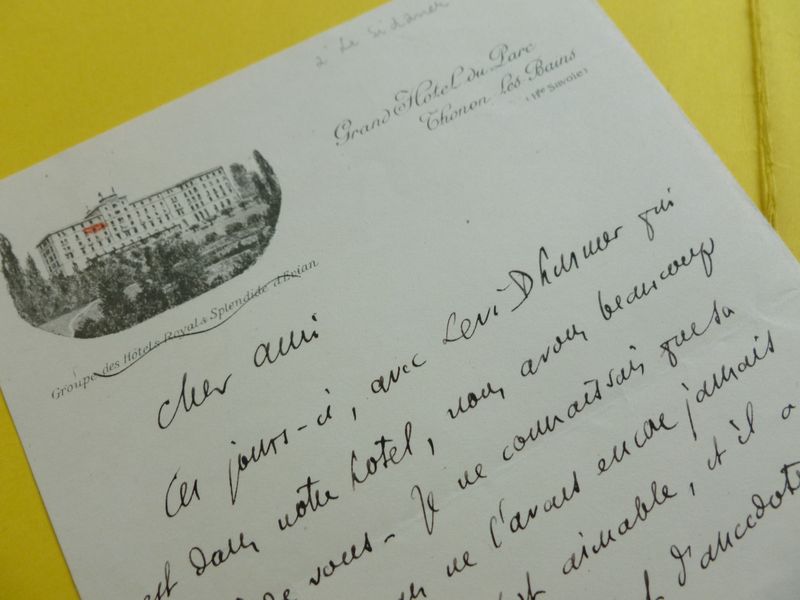 Le Sidaner
Grand Hôtel du Parc
Thonon Les Bains
(Hte Savoie)
Groupe des Hôtels Royal & Splendide d'Evian
cher ami
Ces jours-ci, avec Levi Dhurmer qui
est dans notre hotel, nous avons beaucoup
de vous - Je ne connaissais que sa
ne l'avais encore jamais
est aimable, et il a
d'anecdotes